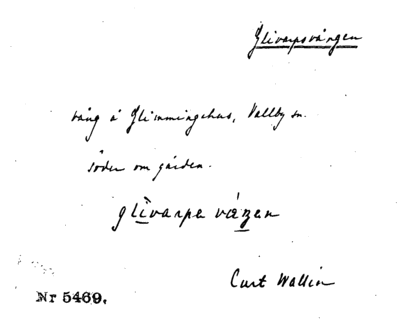 Glivarpsvången
vång å Glimmingehus, Vallby sn.
söder om gården.
glìvarpa væŋen
Curt Wallin
Nr 5469.